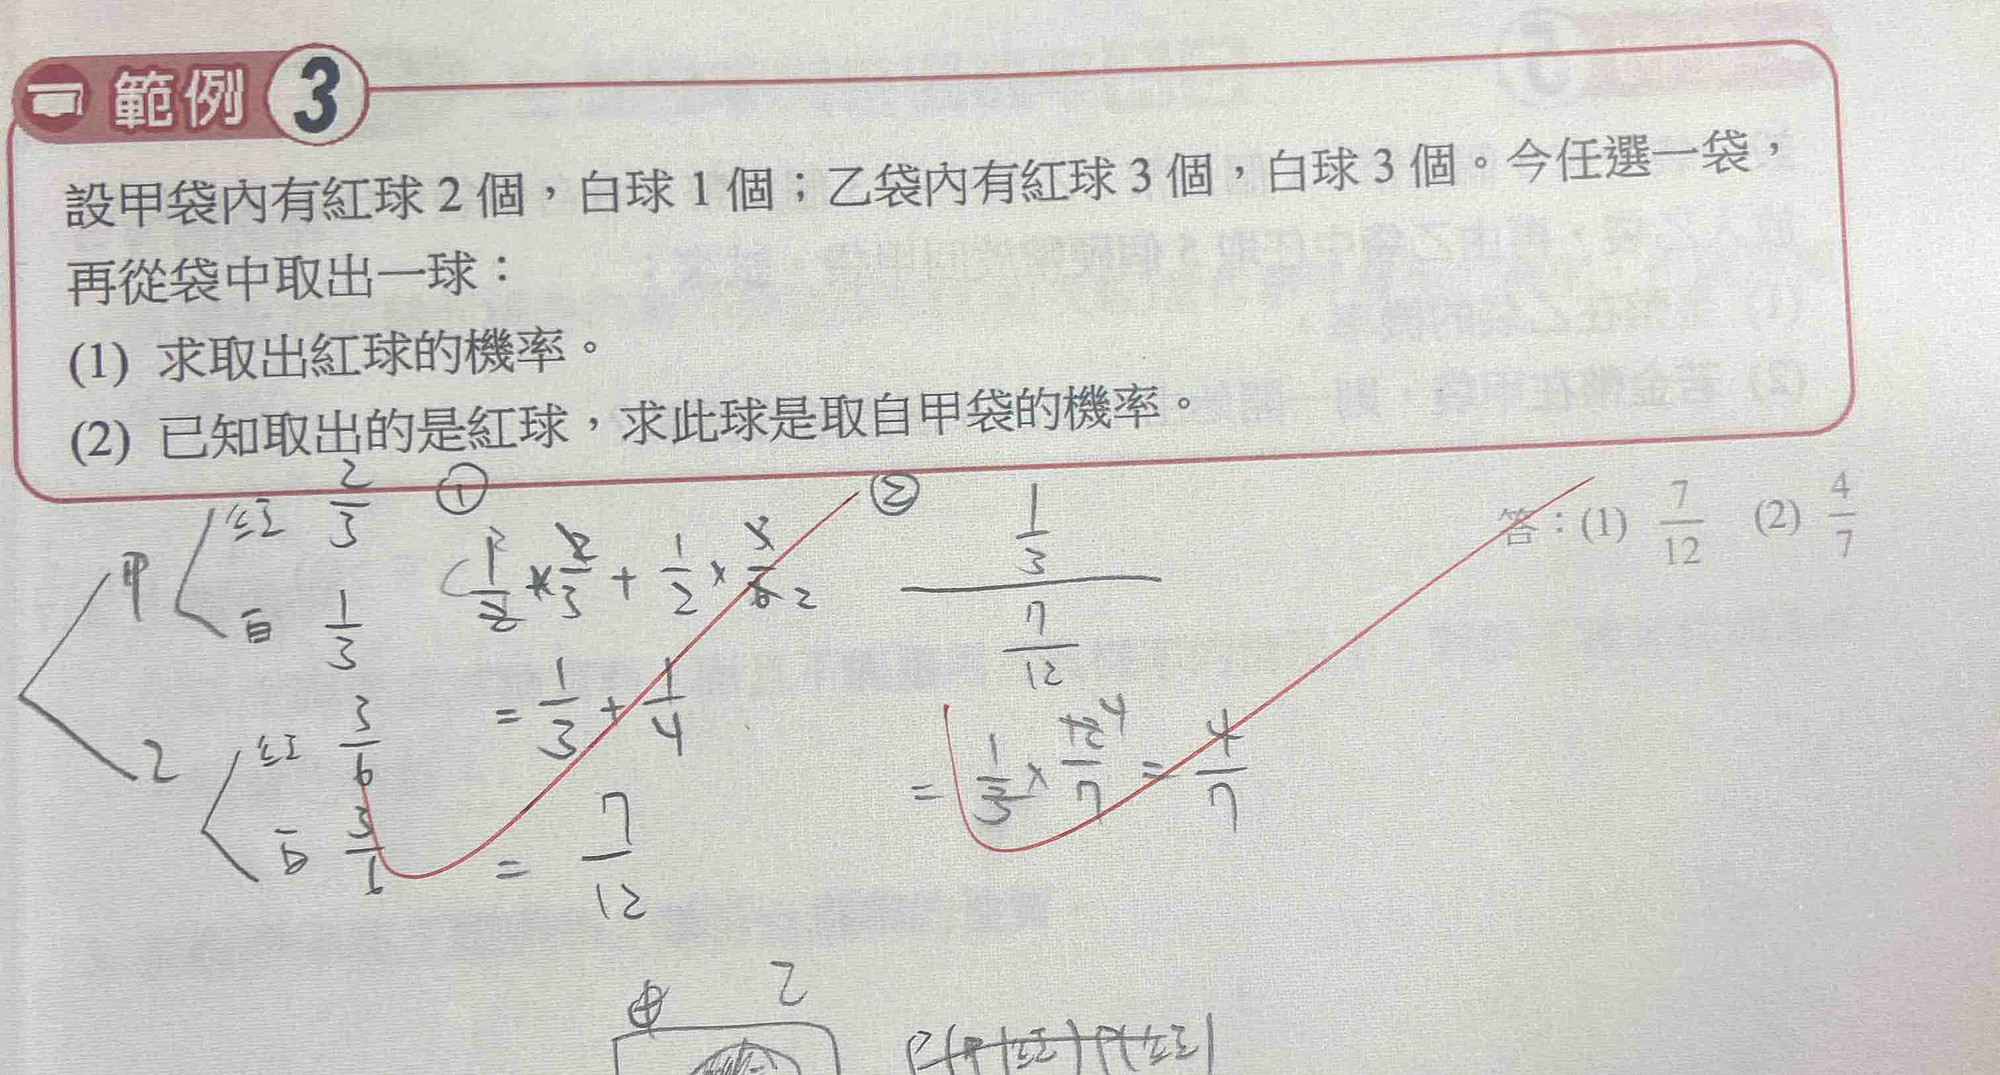 範例 3
設甲袋內有紅球 2 個，白球 1 個；乙袋內有紅球 3 個，白球 3 個。今任選一袋，
再從袋中取出一球：
(1) 求取出紅球的機率。
(2) 已知取出的是紅球，求此球是取自甲袋的機率。
答：(1) 7/12 (2) 4/7
甲 紅 2/3
白 1/3
乙 紅 3/6
白 3/6
① 1/2 × 2/3 + 1/2 × 3/6 2
= 1/3 + 1/4
= 7/12
② 1/3
7/12
= 1/3 × 12/7 4 = 4/7
甲 乙